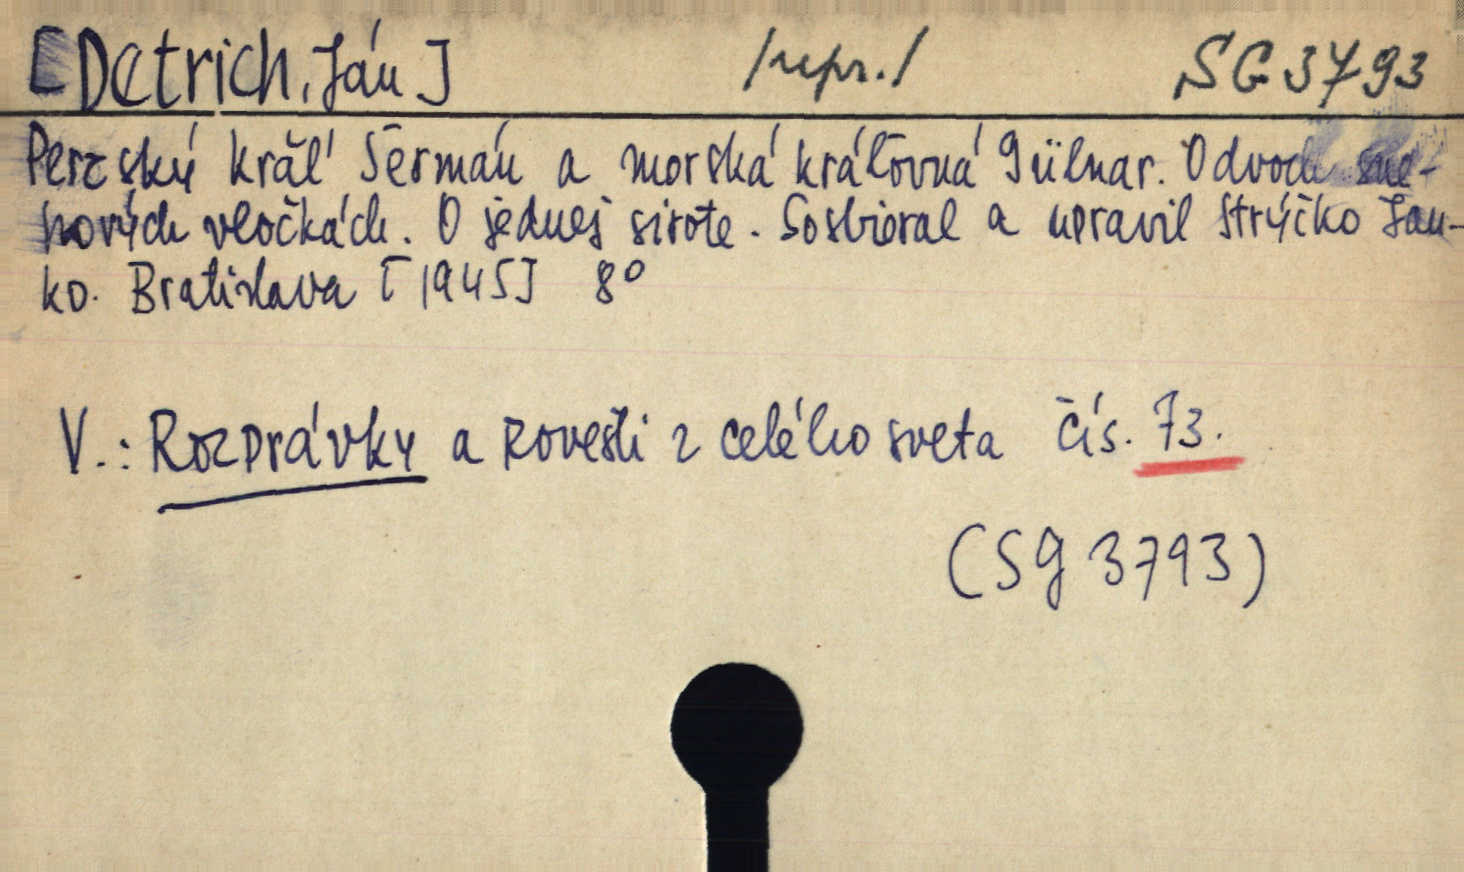 [Detrich, Ján] /repr./ SG 3793
Perzský kráľ Šermán a morská kráľovná Gülnar. O dvoch sne-
hových vločkách. O jednej sirote. Sosbieral a upravil Strýčko Jan-
ko. Bratislava [1945] 8°
V.: Rozprávky a povesti z celého sveta čís. 73.
(SG 3793)